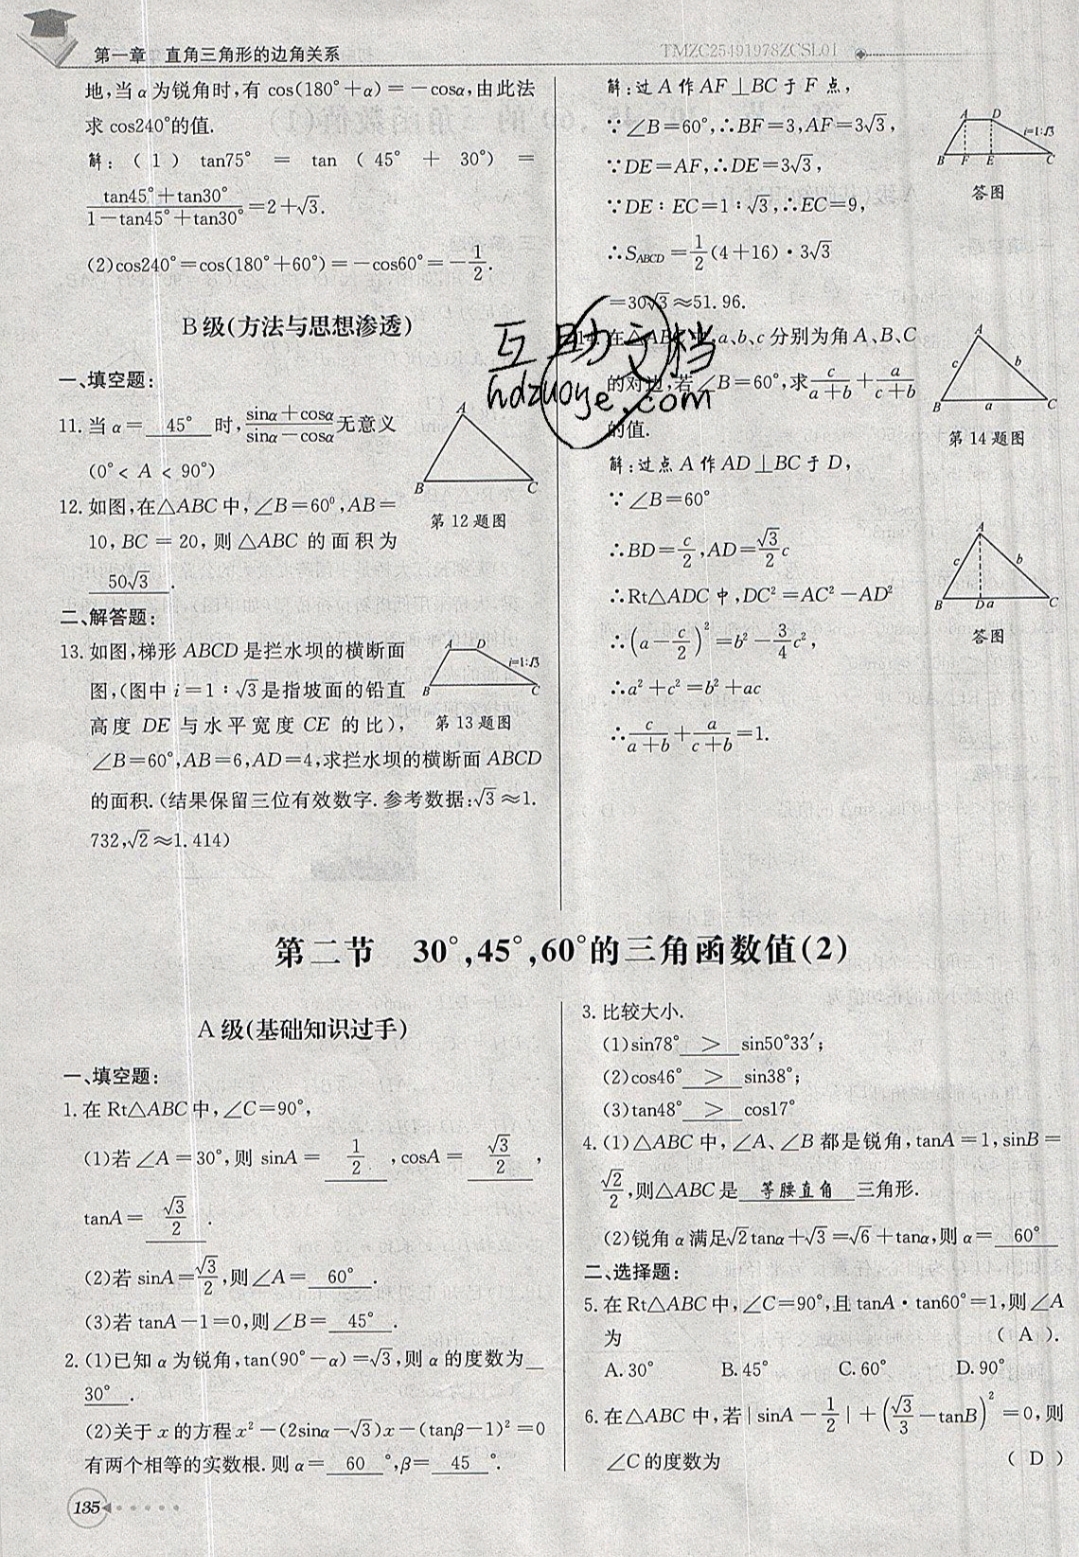 第一章 直角三角形的边角关系
TMZC25491978ZCSL01
地,当α为锐角时,有cos(180°+α)=-cosα,由此法
求cos240°的值.
解:(1) tan75° = tan (45° + 30°) =
(tan45°+tan30°)/(1-tan45°+tan30°)=2+√3.
(2)cos240°=cos(180°+60°)=-cos60°=-1/2.
B级(方法与思想渗透)
一、填空题:
11.当α= 45° 时,(sinα+cosα)/(sinα-cosα)无意义
(0°< A < 90°)
12.如图,在△ABC中,∠B=60⁰,AB=
10,BC=20,则△ABC的面积为
50√3 .
A
B
C
第12题图
二、解答题:
13.如图,梯形ABCD是拦水坝的横断面
图,(图中i=1:√3是指坡面的铅直
高度DE与水平宽度CE的比),
∠B=60°,AB=6,AD=4,求拦水坝的横断面ABCD
的面积.(结果保留三位有效数字.参考数据:√3≈1.
732,√2≈1.414)
A D
i=1:√3
B C
第13题图
解:过A作AF⊥BC于F点,
∵∠B=60°,∴BF=3,AF=3√3,
∵DE=AF,∴DE=3√3,
∵DE:EC=1:√3,∴EC=9,
∴S_ABCD=1/2(4+16)·3√3
=30√3≈51.96.
A D
i=1:√3
B F E C
答图
14.在△ABC中,a、b、c分别为角A、B、C
的对边,若∠B=60°,求c/(a+b)+a/(c+b)
的值.
A
c b
B a C
第14题图
解:过点A作AD⊥BC于D,
∵∠B=60°
∴BD=c/2,AD=√3/2c
∴Rt△ADC中,DC²=AC²-AD²
∴(a-c/2)²=b²-3/4c²,
∴a²+c²=b²+ac
∴c/(a+b)+a/(c+b)=1.
A
c b
B D a C
答图
互助文档
hdzuoye.com
第二节 30°,45°,60°的三角函数值(2)
A级(基础知识过手)
一、填空题:
1.在Rt△ABC中,∠C=90°,
(1)若∠A=30°,则sinA= 1/2 ,cosA= √3/2 ,
tanA= √3/2 .
(2)若sinA=√3/2,则∠A= 60° .
(3)若tanA-1=0,则∠B= 45° .
2.(1)已知α为锐角,tan(90°-α)=√3,则α的度数为
30° .
(2)关于x的方程x²-(2sinα-√3)x-(tanβ-1)²=0
有两个相等的实数根.则α= 60 °,β= 45 °.
3.比较大小.
(1)sin78° > sin50°33′;
(2)cos46° > sin38°;
(3)tan48° > cos17°
4.(1)△ABC中,∠A、∠B都是锐角,tanA=1,sinB=
√2/2,则△ABC是 等腰直角 三角形.
(2)锐角α满足√2tanα+√3=√6+tanα,则α= 60°
二、选择题:
5.在Rt△ABC中,∠C=90°,且tanA·tan60°=1,则∠A
为 ( A ).
A.30° B.45° C.60° D.90°
6.在△ABC中,若|sinA-1/2|+(√3/3-tanB)²=0,则
∠C的度数为 ( D )
135